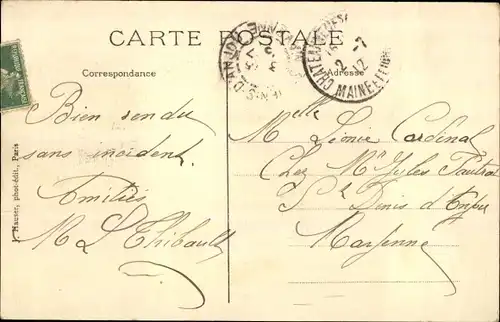 CARTE POSTALE
Correspondance
Adresse
Bien rendu
sans incident.
Amitiés
M L Thibault
Melle Léonie Cardinal
Chez Mr Jules
St Denis d'Anjou
Mayenne
J. Hauser, phot-édit., Paris
2-7
12
MAINE ET LOIRE